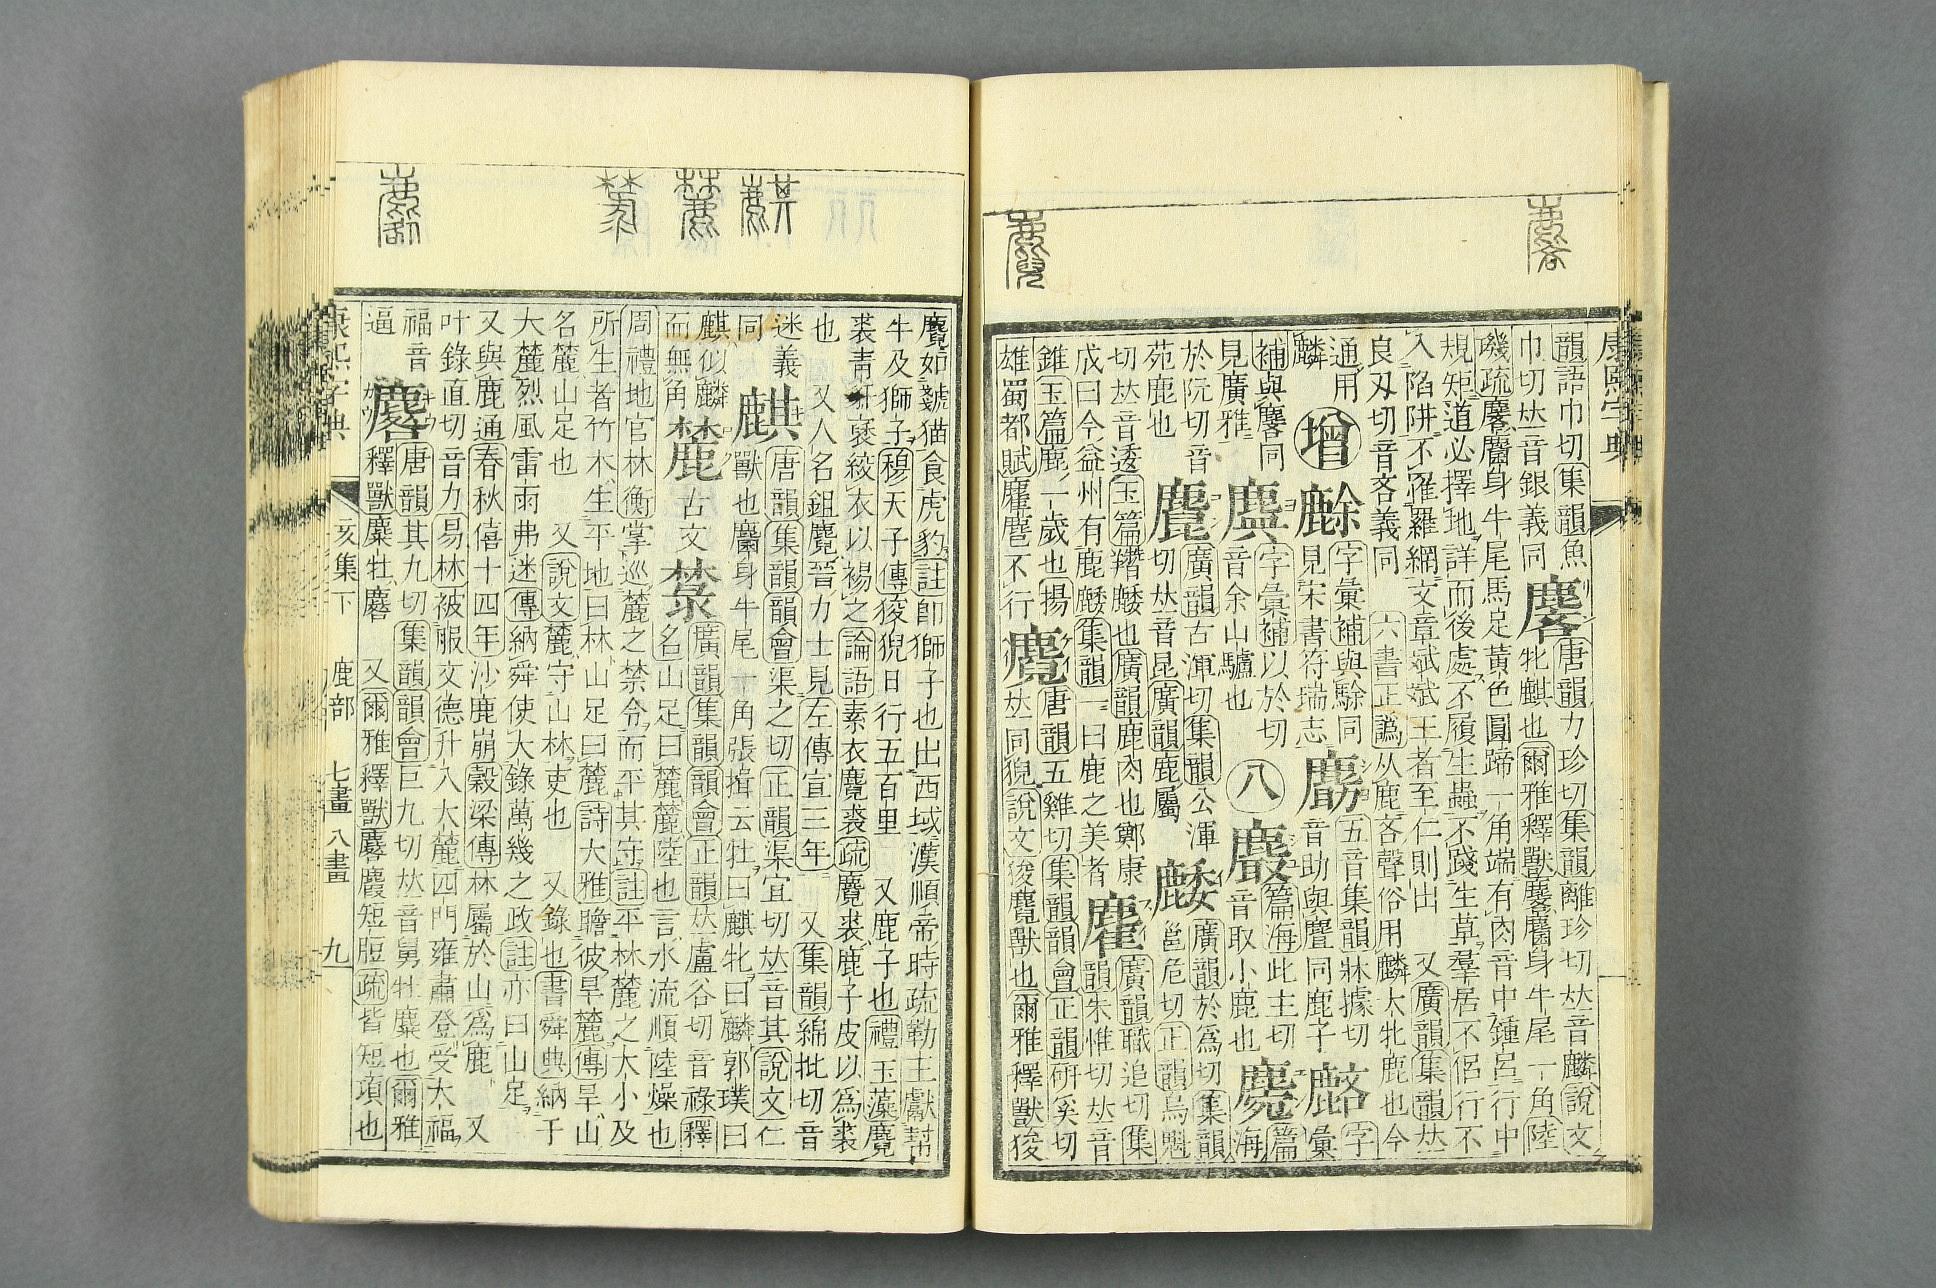 康熙字典
韻語巾切集韻魚
巾切𠀤音銀義同
麐
唐韻力珍切集韻離珍切𠀤音麟說文
牝麒也爾雅釋獸麐麕身牛尾一角陸
璣疏麐麕身牛尾馬足黃色圓蹄一角端有肉音中鍾呂行中
規矩道必擇地詳而後處不履生蟲不踐生草羣居不侶行不
入陷阱不罹羅網文章斌斌王者至仁則出　又廣韻集韻𠀤
良刃切音吝義同　六書正譌从鹿吝聲俗用麟大牝鹿也今
通用
麟
增
字彙補與駼同
見宋書符瑞志
麆
五音集韻牀據切
音助與麆同鹿子
字
彙
補與麐同
見廣雅
字彙補以於切
音余山驢也
八
篇海此主切
音取小鹿也
篇
海
於阮切音
苑鹿也
廣韻古渾切集韻公渾
切𠀤音昆廣韻鹿屬
廣韻於爲切集韻
邕危切正韻烏魁
切𠀤音逶玉篇羳䴧也廣韻鹿肉也鄭康
成曰今益州有鹿䴧集韻一曰鹿之美者
廣韻職追切集
韻朱惟切𠀤音
錐玉篇鹿一歲也揚
雄蜀都賦麚麀不行
麑
唐韻五雞切集韻韻會正韻硏奚切
𠀤同猊說文狻麑獸也爾雅釋獸狻
麑如虦猫食虎豹註卽獅子也出西域漢順帝時疏勒王獻犎
牛及獅子穆天子傳狻猊日行五百里　又鹿子也禮玉藻麑
裘靑豻褎絞衣以裼之論語素衣麑裘疏麑裘鹿子皮以爲裘
也　又人名鉏麑晉力士見左傳宣三年　又集韻綿批切音
迷義
同
麒
唐韻集韻韻會渠之切正韻渠宜切𠀤音其說文仁
獸也麕身牛尾一角張揖云牡曰麒牝曰麟郭璞曰
麒似麟
而無角
麓
古文
廣韻集韻韻會正韻𠀤盧谷切音祿釋
名山足曰麓麓陸也言水流順陸燥也
周禮地官林衡掌巡麓之禁令而平其守註平林麓之大小及
所生者竹木生平地曰林山足曰麓詩大雅瞻彼旱麓傳旱山
名麓山足也　又說文麓守山林吏也　又錄也書舜典納于
大麓烈風雷雨弗迷傳納舜使大錄萬幾之政註亦曰山足
又與鹿通春秋僖十四年沙鹿崩穀梁傳林屬於山爲鹿　又
叶錄直切音力易林被服文德升入大麓四門雍肅登受大福
福音
逼
麔
唐韻其九切集韻韻會巨九切𠀤音舅牡麋也爾雅
釋獸麋牡麔　又爾雅釋獸麔麚短脰疏皆短項也
康熙字典
亥集下　鹿部　七畫八畫　九